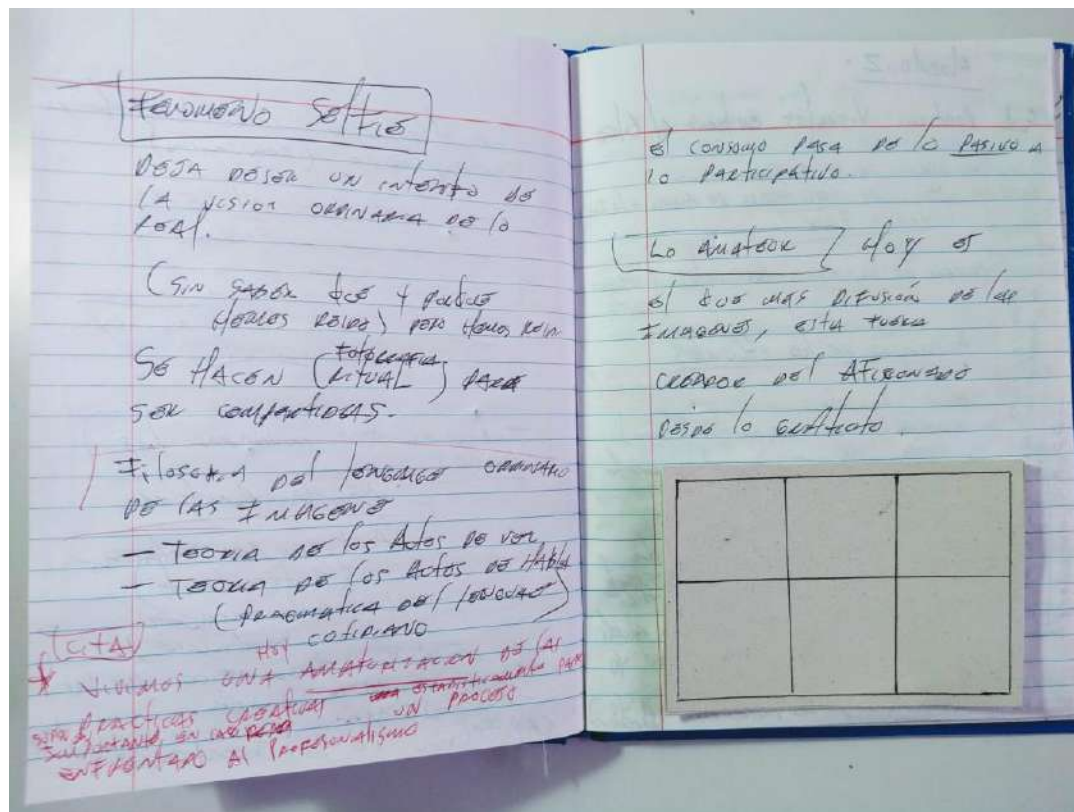 FENOMENO SELFIE
DEJA DE SER UN intento DE
LA VISION ORDINARIA DE lo
REAL.
(SIN SABER QUE Y PORQUE
HEMOS REIDO) PERO HEMOS
FOTOGRAFIA
SE HACEN (RITUAL) PARA
SER COMPARTIDAS.
FILOSOFIA DEL LENGUAJE ORDINARIO
DE LAS IMAGENE
— TEORIA DE los Actos DE VER
— TEORIA DE los Actos DE HABLA
(PRAGMATICA DEL LENGUAJE
COTIDIANO
CITA
HOY
VIVIMOS UNA AMATURIZACION DE LAS
PRACTICAS CREATIVAS
UN PROCESO
ENFRENTADO Al PROFESIONALISMO
El CONSUMO PASA DE lo PASIVO A
lo PARTICIPATIVO.
Lo AMATEUR HOY ES
El QUE MAS DIFUSIÓN DE las
IMAGENES, ESTA FUERA
CREADOR DEL AFICIONADO
DESDE lo GRATUITO.